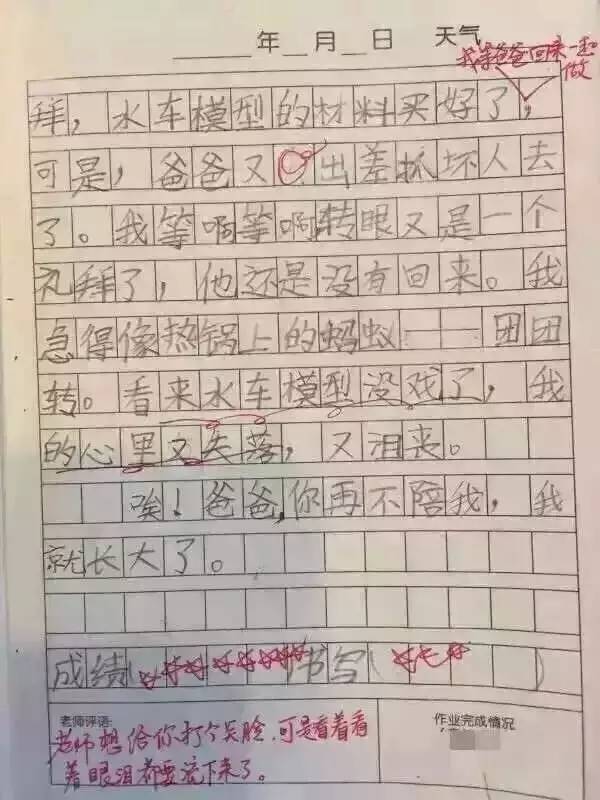 年 月 日 天气
我等爸爸回来一起做
拜，水车模型的材料买好了，
可是，爸爸又出差抓坏人去
了。我等啊等啊转眼又是一个
礼拜了，他还是没有回来。我
急得像热锅上的蚂蚁——团团
转。看来水车模型没戏了，我
的心里又失落，又沮丧。
唉！爸爸，你再不陪我，我
就长大了。
成绩( ☆☆☆☆☆☆☆ 书写( ☆☆☆ )
老师评语：
作业完成情况
老师想给你打个笑脸，可是看着看
着眼泪都要流下来了。